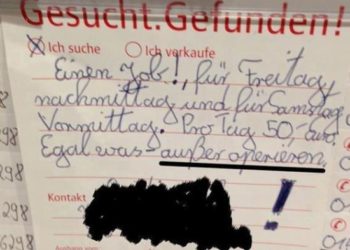 Gesucht.Gefunden!
Ich suche Ich verkaufe
Einen Job!, für Freitag,
nachmittag und für Samstag
Vormittag. Pro Tag 50,-
Egal was - außer operieren
298
298
298
Kontakt !